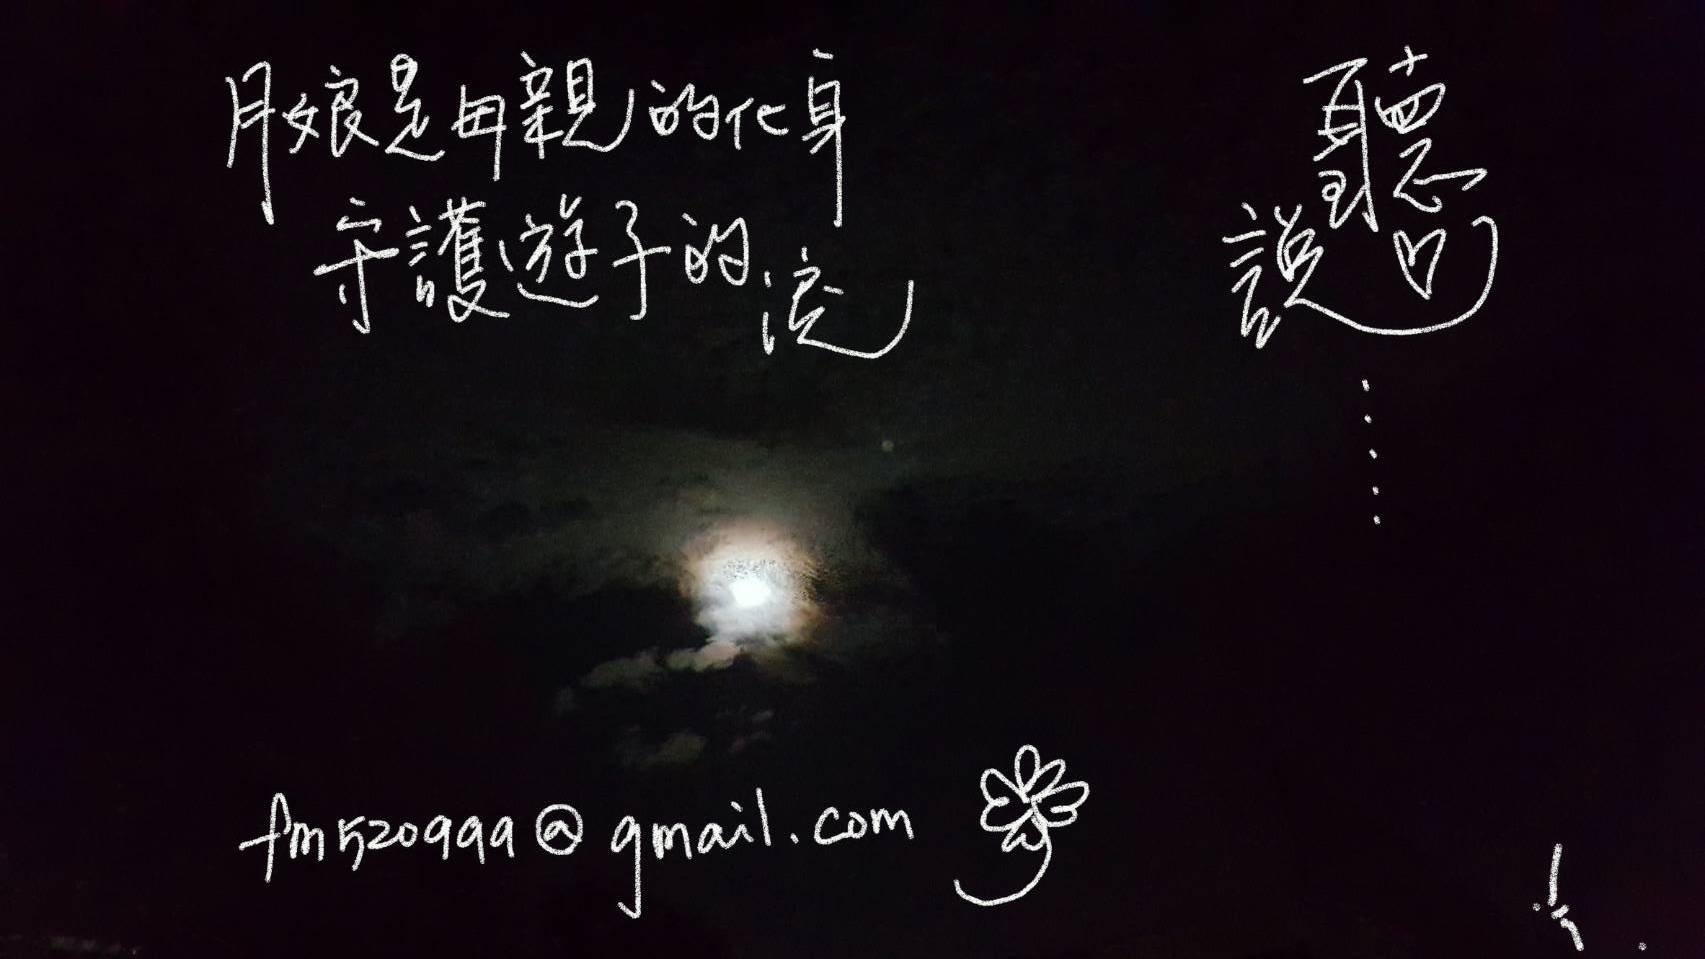 聽說
.....
月娘是母親的化身
守護遊子的
fm520999@gmail.com